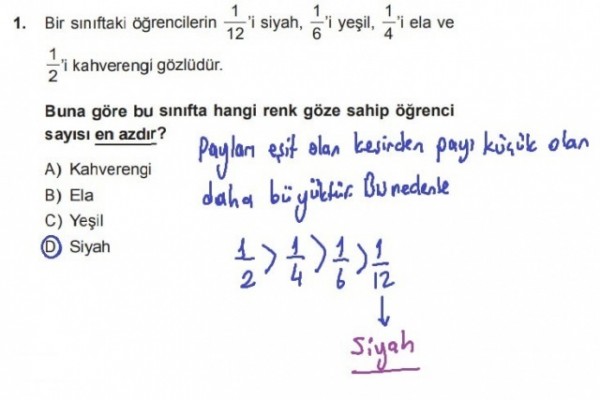 1. Bir sınıftaki öğrencilerin 1/12'i siyah, 1/6'i yeşil, 1/4'i ela ve
1/2'i kahverengi gözlüdür.
Buna göre bu sınıfta hangi renk göze sahip öğrenci
sayısı en azdır?
Payları eşit olan kesirden payı küçük olan
daha büyüktür. Bu nedenle
A) Kahverengi
B) Ela
C) Yeşil
D) Siyah
1/2 > 1/4 > 1/6 > 1/12
Siyah